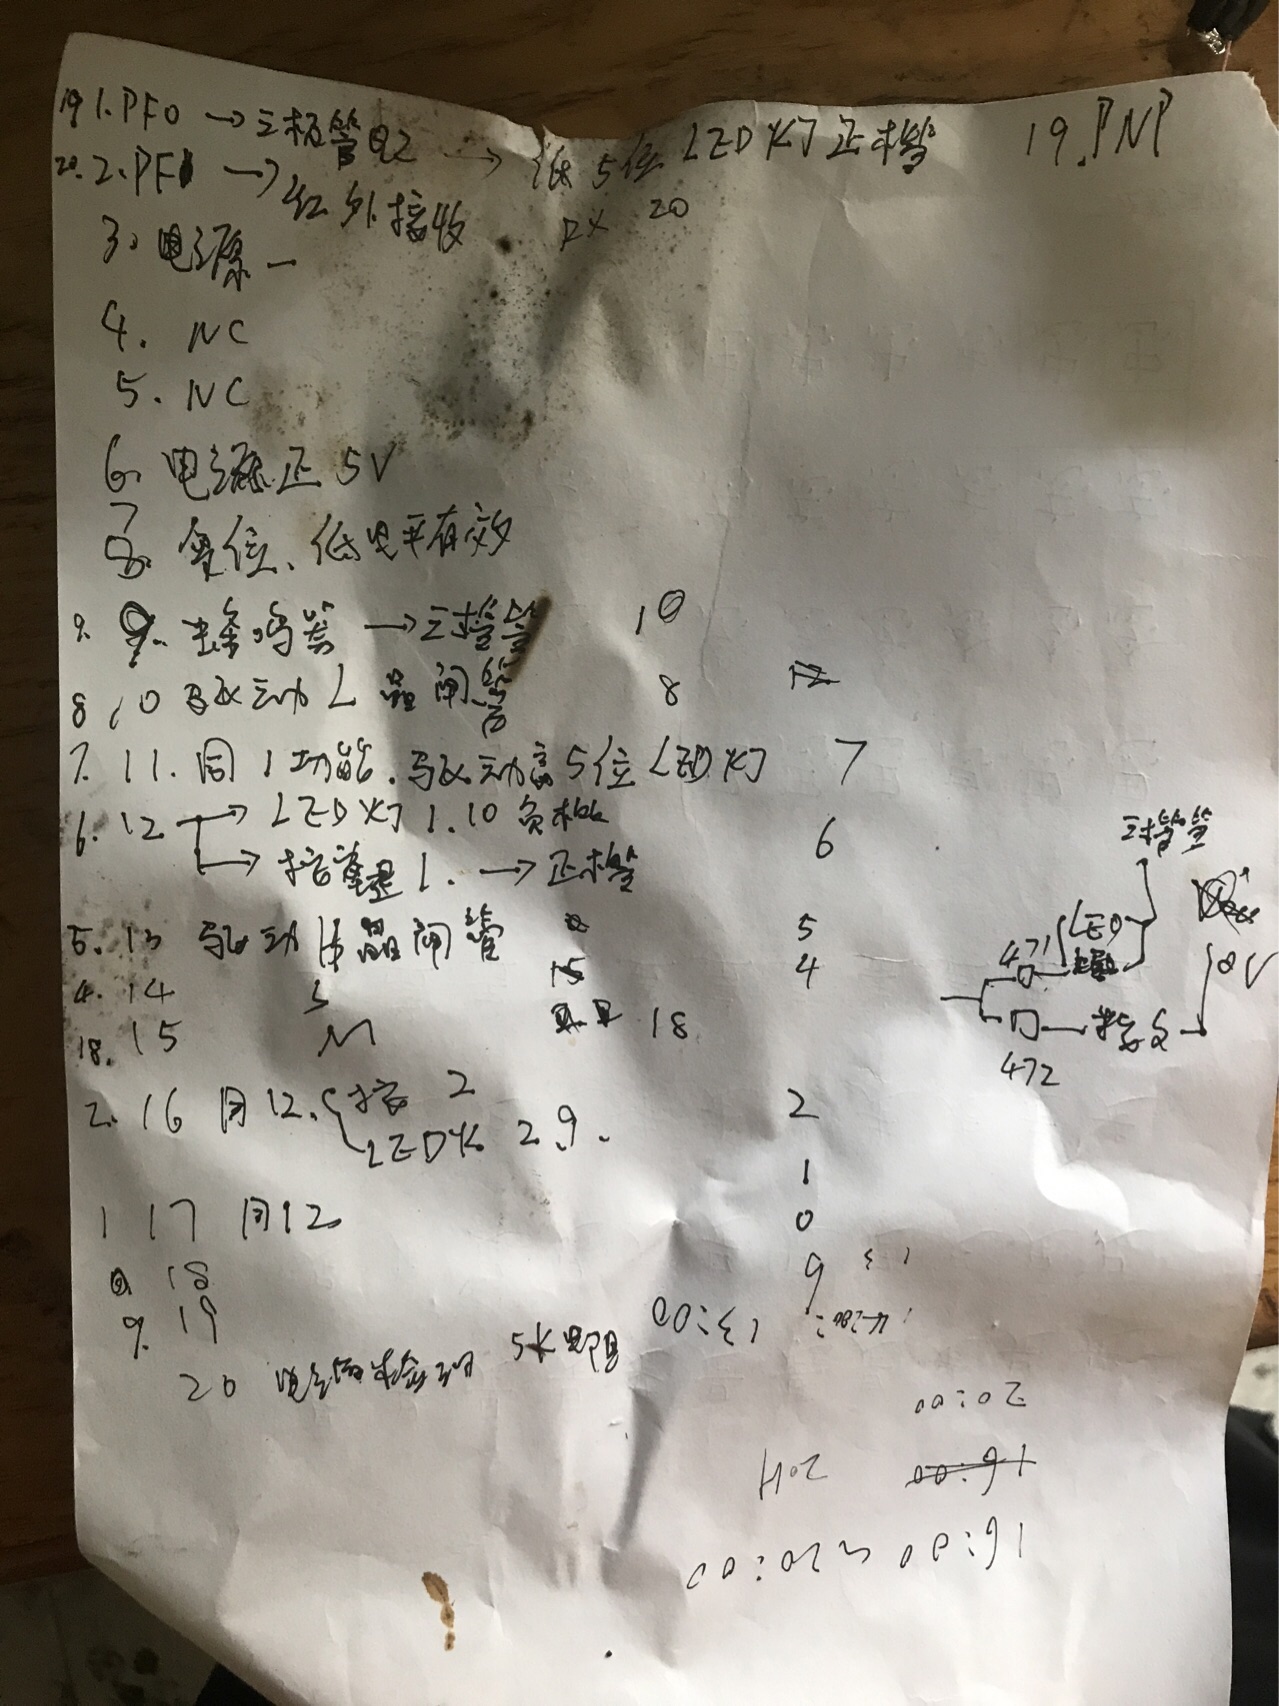 19 1.PF0 → 三极管Q2 → 低5位 LED灯正极 19.PNP
20. 2.PF1 → 红外接收 RX 20
3. 电源 —
4. NC
5. NC
6. 电源正 5V
7
8. 复位、低电平有效
9. 9. 蜂鸣器 → 三极管 10
8 10 驱动 L 晶闸管 8 12
7. 11. 同1功能.驱动高5位LED灯 7
6. 12 → LED灯 1.10 负极 6
→ 按键 1. → 正极
5. 13 驱动 晶闸管 5
4. 14 15 4
18. 15 M 18
2. 16 同12. 按 2 2
LED灯 2.9.
1
1 17 同12 0
0 18 9
9. 19 13:00
20 电 检测 5K电阻
三极管
471 LED
472
20:00
16:00
20H
16:00 20:00